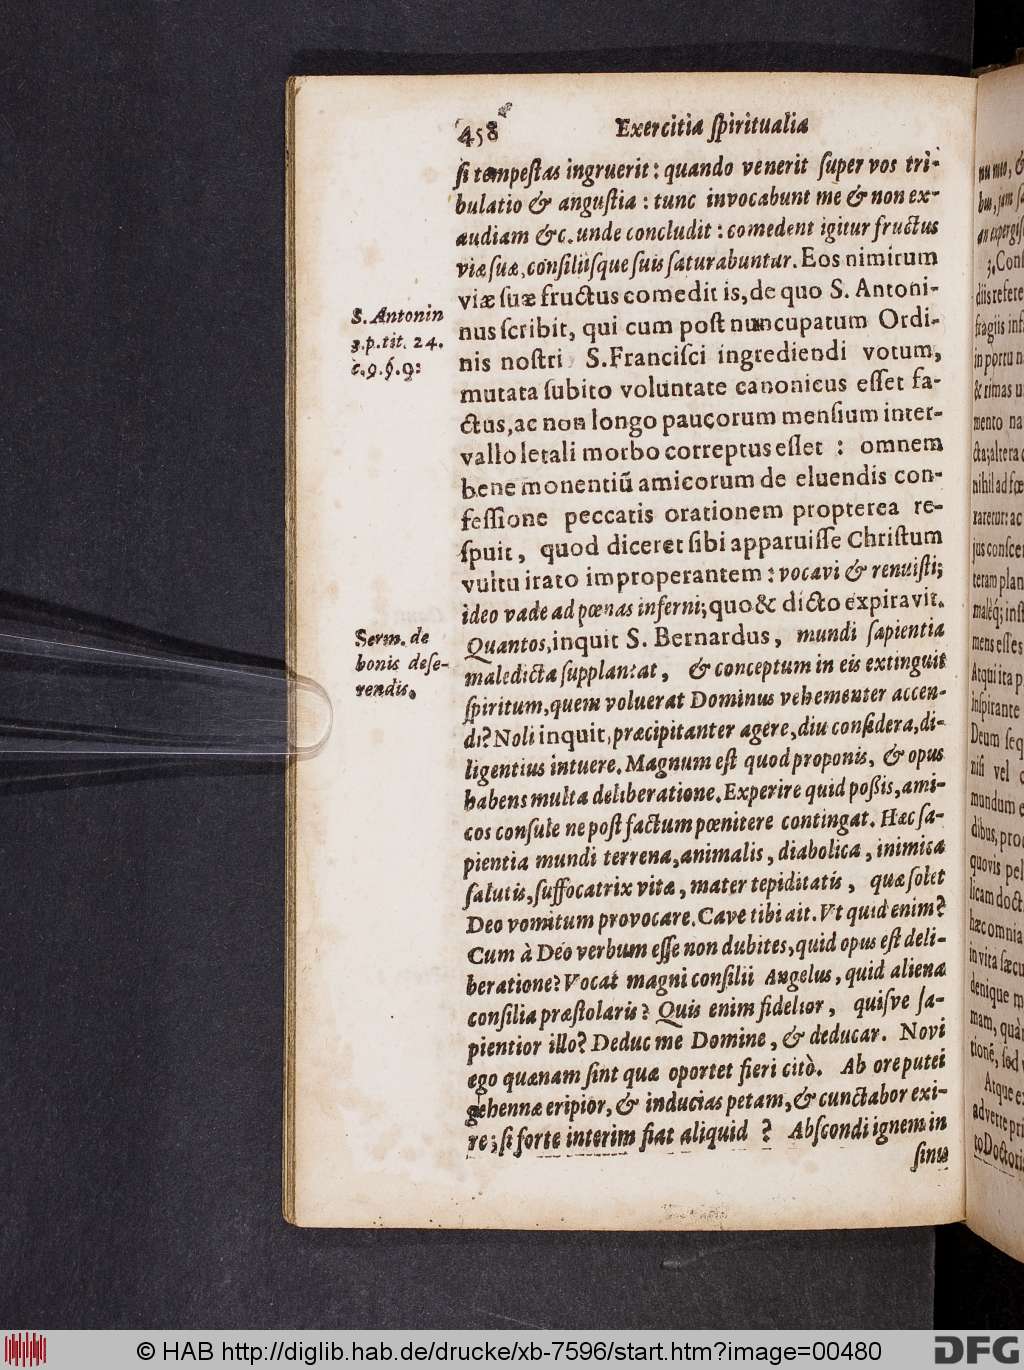 458 Exercitia ſpiritualia
ſi tempeſtas ingruerit: quando venerit ſuper vos tri-
bulatio & anguſtia: tunc invocabunt me & non ex-
audiam &c. unde concludit: comedent igitur fructus
viæ ſuæ, conſiliiſque ſuis ſaturabuntur. Eos nimirum
viæ ſuæ fructus comedit is, de quo S. Antoni-
nus ſcribit, qui cum poſt nuncupatum Ordi-
nis noſtri S. Franciſci ingrediendi votum,
mutata ſubito voluntate canonicus eſſet fa-
ctus, ac non longo paucorum menſium inter-
vallo letali morbo correptus eſſet: omnem
bene monentiū amicorum de eluendis con-
feſſione peccatis orationem propterea re-
ſpuit, quod diceret ſibi apparuiſſe Chriſtum
vultu irato improperantem: vocavi & renuiſti;
ideo vade ad pœnas inferni; quo & dicto expiravit.
Quantos, inquit S. Bernardus, mundi ſapientia
maledicta ſupplantat, & conceptum in eis extinguit
ſpiritum, quem voluerat Dominus vehementer accen-
di? Noli inquit, præcipitanter agere, diu conſidera, di-
ligentius intuere. Magnum eſt quod proponis, & opus
habens multa deliberatione. Experire quid poſſis, ami-
cos conſule ne poſt factum pœnitere contingat. Hæc ſa-
pientia mundi terrena, animalis, diabolica, inimica
ſalutis, ſuffocatrix vitæ, mater tepiditatis, quæ ſolet
Deo vomitum provocare. Cave tibi ait. Ut quid enim?
Cum à Deo verbum eſſe non dubites, quid opus eſt deli-
beratione? Vocat magni conſilii Angelus, quid aliena
conſilia præſtolaris? Quis enim fidelior, quiſve ſa-
pientior illo? Deduc me Domine, & deducar. Novi
ego quænam ſint quæ oportet fieri citò. Ab ore putei
gehennæ eripior, & inducias petam, & cunctabor exi-
re; ſi forte interim fiat aliquid? Abſcondi ignem in
ſinu
S. Antonin
3. p. tit. 24.
c. 9. §. 9:
Serm. de
bonis deſe-
rendis.
© HAB http://diglib.hab.de/drucke/xb-7596/start.htm?image=00480
DFG